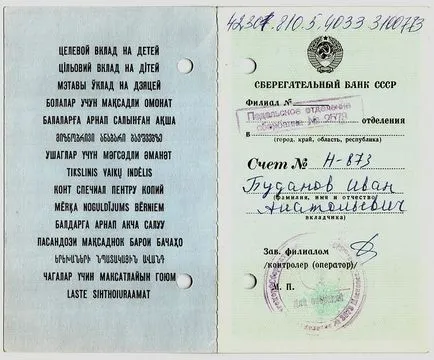 ЦЕЛЕВОЙ ВКЛАД НА ДЕТЕЙ
ЦІЛЬОВИЙ ВКЛАД НА ДІТЕЙ
МЭТАВЫ ЎКЛАД НА ДЗЯЦЕЙ
БОЛАЛАР УЧУН МАҚСАДЛИ ОМОНАТ
БАЛАЛАРҒА АРНАП САЛЫНҒАН АҚША
მიზნობრივი ანაბარი ბავშვებზე
УШАГЛАР ҮЧҮН МӘГСӘДЛИ ӘМАНӘТ
TIKSLINIS VAIKŲ INDĖLIS
КОНТ СПЕЧИАЛ ПЕНТРУ КОПИЙ
MĒRĶA NOGULDĪJUMS BĒRNIEM
БАЛДАРГА АРНАП АКЧА САЛУУ
ПАСАНДОЗИ МАҚСАДНОК БАРОИ БАЧАҲО
ԵՐԵԽԱՆԵՐԻ ՆՊԱՏԱԿԱՅԻՆ ԱՎԱՆԴ
ЧАГАЛАР ҮЧИН МАКСАТЛАЙЫН ГОЮМ
LASTE SIHTHOIURAAMAT
42307.810.5.4033 3100773
СБЕРЕГАТЕЛЬНЫЙ БАНК СССР
Филиал №
отделение
отделения
в
(город, край, область, республика)
Счет № Н-873
Буданов Иван
(фамилия, имя и отчество)
Анатольевич
вкладчика)
Зав. филиалом
/контролер (оператор)/
М. П.